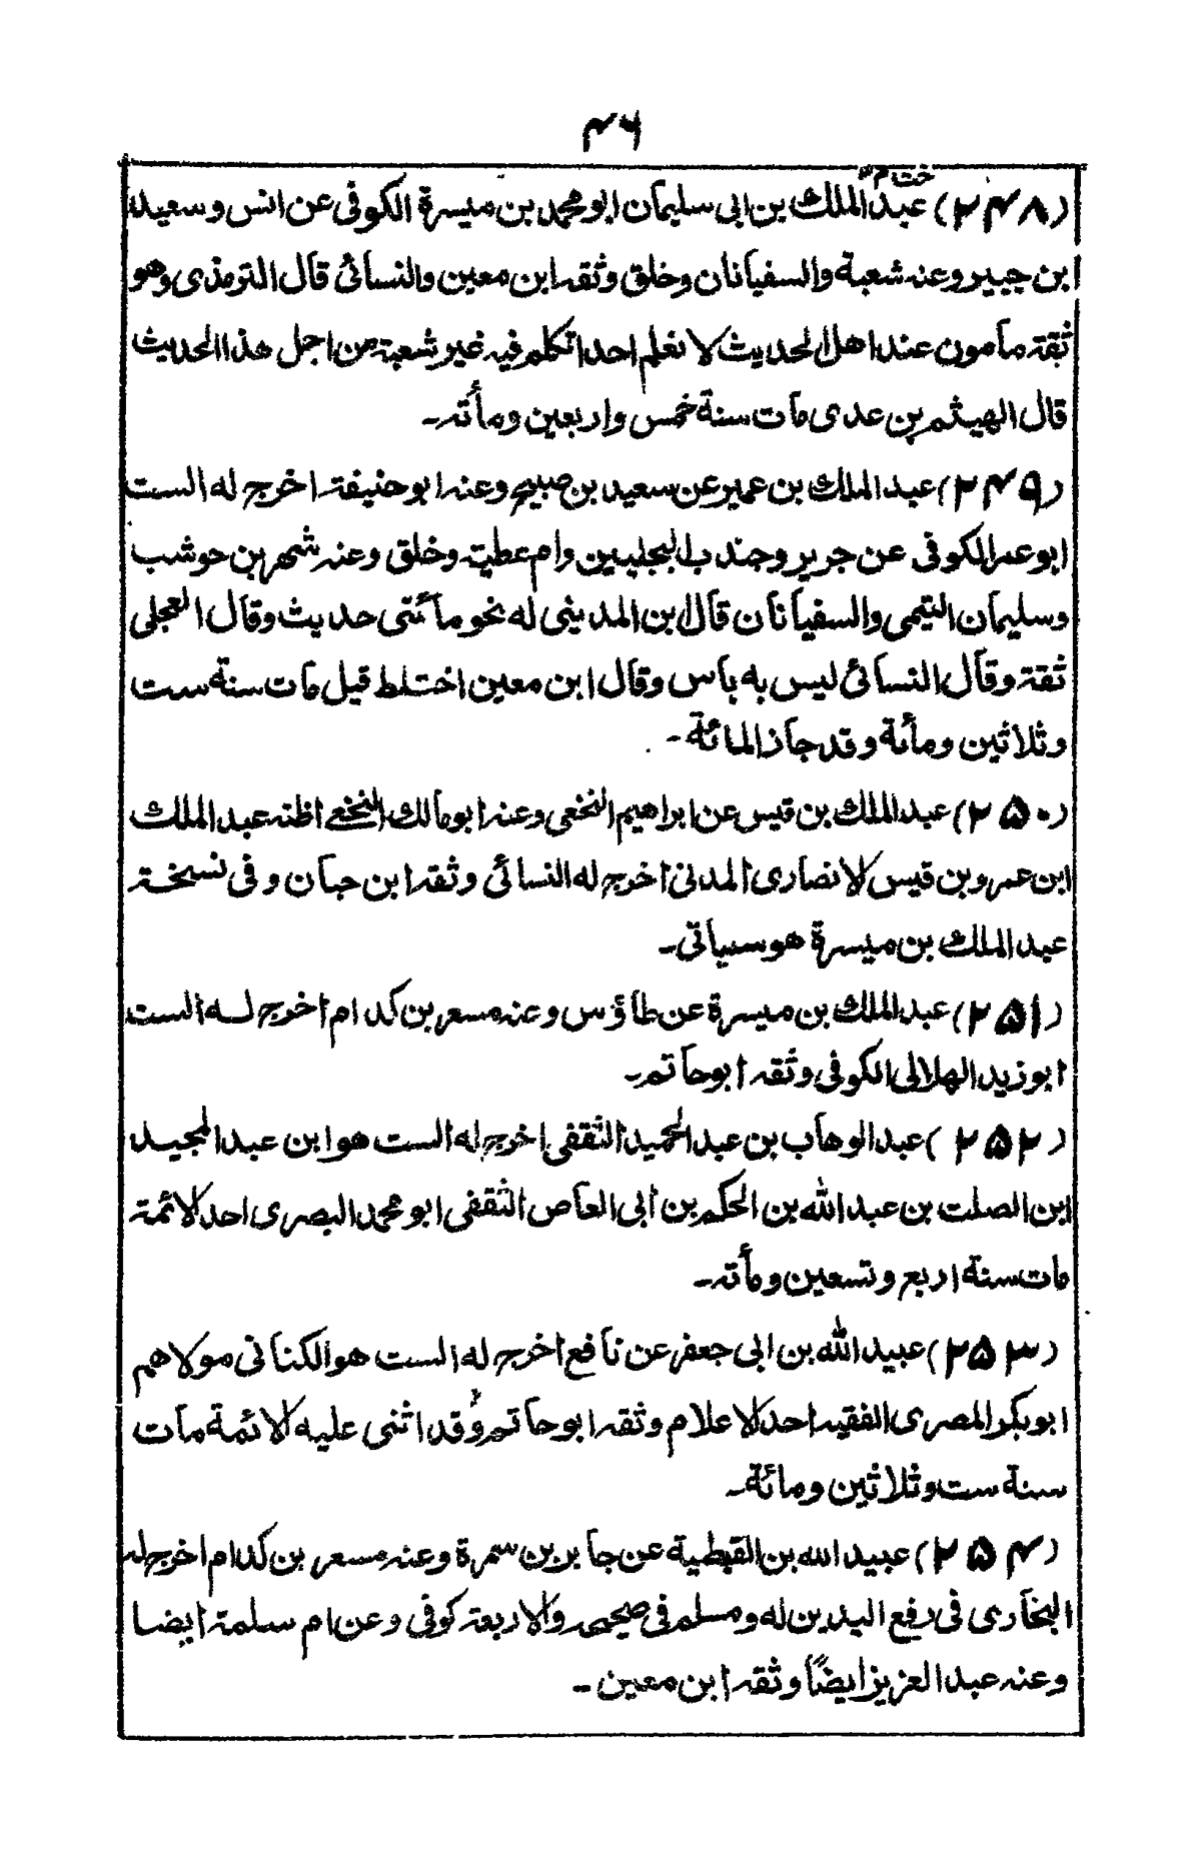 ۴۶
خت م ۴
(۲۴۸) عبدالملك بن ابی سلیمان ابو محمد بن میسرة الکوفی عن انس وسعید
ابن جبیر وعنه شعبة والسفیانان وخلق وثقه ابن معین والنسائی قال الترمذی وهو
ثقة مأمون عند اهل الحدیث لا نعلم احدا تکلم فیه غیر شعبة من اجل هذا الحدیث
قال الهیثم بن عدی مات سنة خمس واربعین ومأته۔
(۲۴۹) عبد الملك بن عمیر عن سعید بن صبیح وعنه ابو حنیفة اخرج له الست
ابو عمر الکوفی عن جریر وجندب البجلیین وام عطیة وخلق وعنه شهر بن حوشب
وسلیمان التیمی والسفیانان قال ابن المدینی له نحو مأئتی حدیث وقال العجلی
ثقة وقال النسائی لیس به باس وقال ابن معین اختلط قیل مات سنة ست
وثلاثین ومأئة وقد جاز المائة۔
(۲۵۰) عبد الملك بن قیس عن ابراهیم النخعی وعنه ابو مالك النخعی اظنه عبد الملك
ابن عمرو بن قیس الانصاری المدنی اخرج له النسائی وثقه ابن حبان وفی نسخة
عبد الملك بن میسرة هو سیاتی۔
(۲۵۱) عبد الملك بن میسرة عن طاؤس وعنه مسعر بن کدام اخرج له الست
ابو زید الهلالی الکوفی وثقه ابو حاتم۔
(۲۵۲) عبد الوهاب بن عبد الحمید الثقفی اخرج له الست هو ابن عبد المجید
ابن الصلت بن عبد الله بن الحکم بن ابی العاص الثقفی ابو محمد البصری احد الائمة
مات سنة اربع وتسعین ومأته۔
(۲۵۳) عبید الله بن ابی جعفر عن نافع اخرج له الست هو الکنانی مولاهم
ابو بکر المصری الفقیه احد الاعلام وثقه ابو حاتم وقد اثنی علیه الائمة مات
سنة ست وثلاثین ومائة۔
(۲۵۴) عبید الله بن القبطیة عن جابر بن سمرة وعنه مسعر بن کدام اخرج له
البخاری فی رفع الیدین له ومسلم فی صحیحه والاربعة کوفی وعن ام سلمة ایضا
وعنه عبد العزیز ایضاً وثقه ابن معین۔